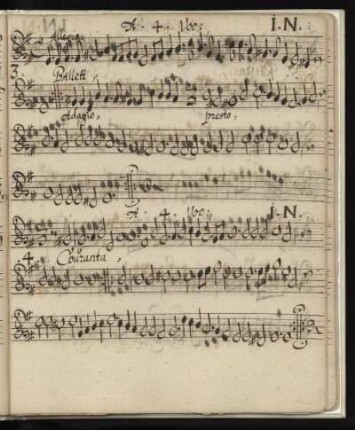 A. 4. Voc: I. N.
Allegro
3.
Ballett.
Adagio. presto.
A. 4. Voc: I. N.
4. Couranta.